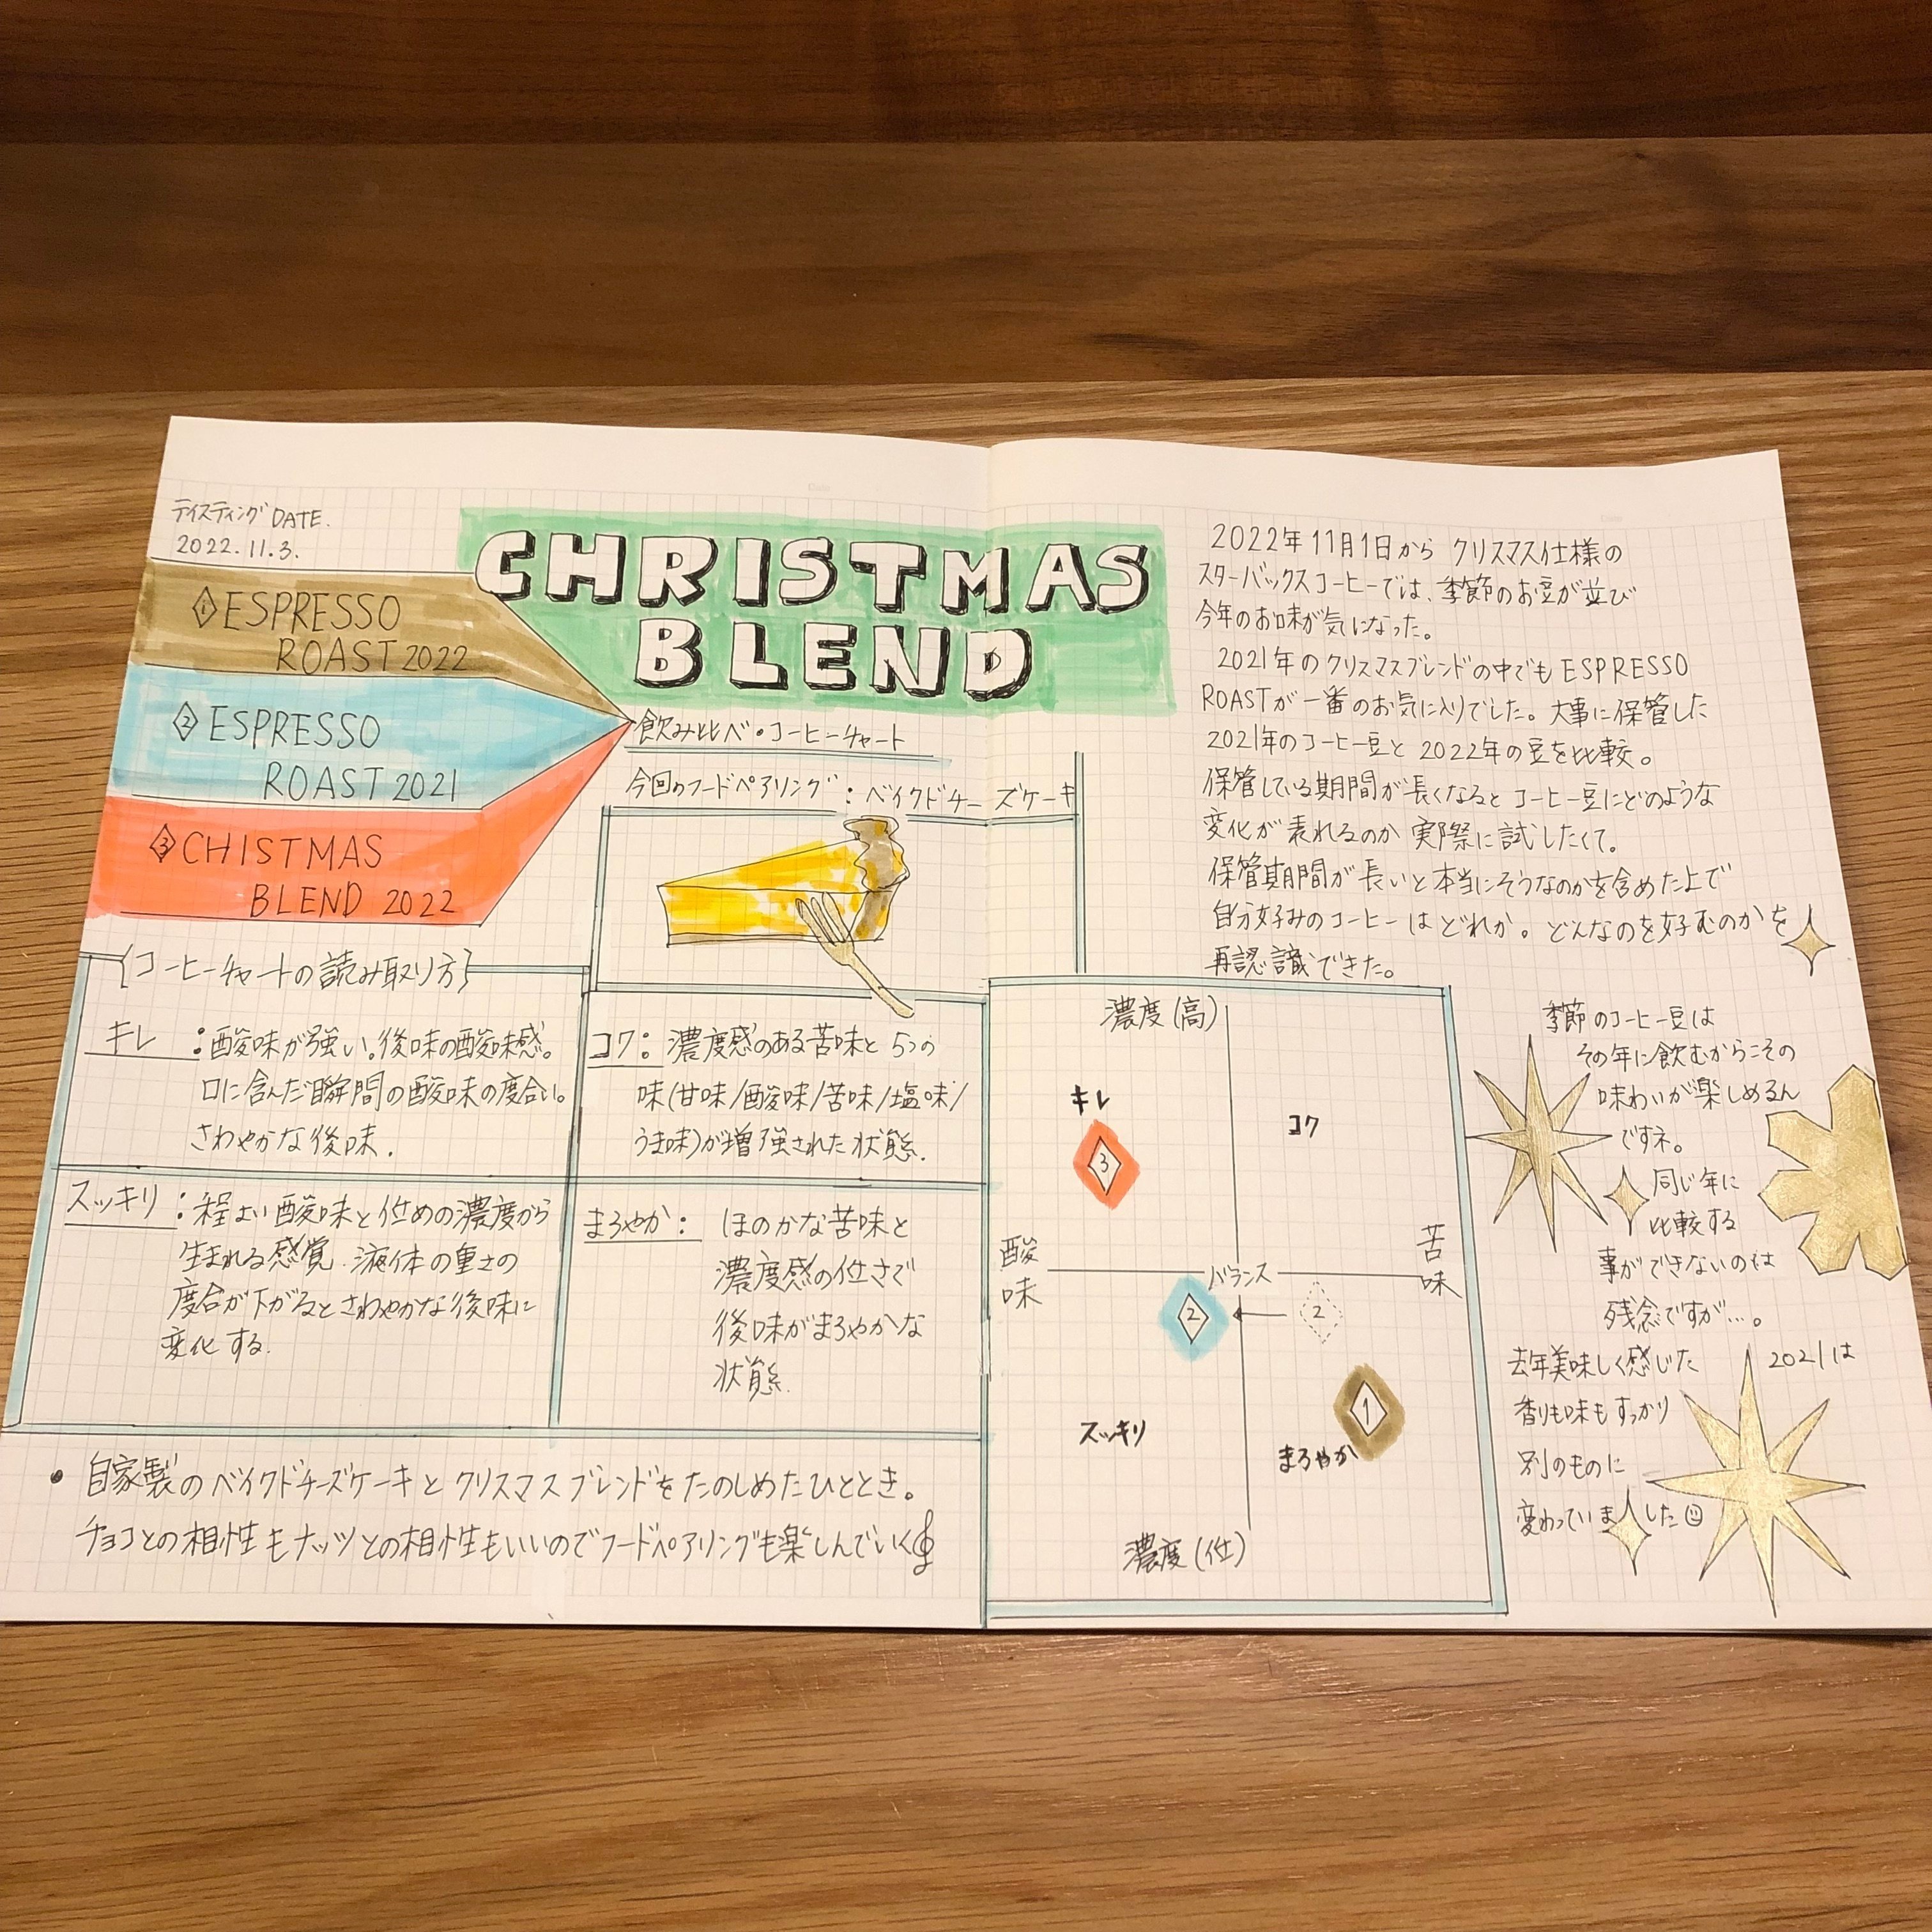 テイスティングDATE.
2022.11.3.
CHRISTMAS
BLEND
① ESPRESSO
ROAST 2022
② ESPRESSO
ROAST 2021
③ CHISTMAS
BLEND 2022
飲み比べ・コーヒーチャート
今回のフードペアリング：ベイクドチーズケーキ
{コーヒーチャートの読み取り方}
キレ：酸味が強い。後味の酸味感。
口に含んだ瞬間の酸味の度合い。
さわやかな後味.
コク：濃度感のある苦味と5つの
味(甘味/酸味/苦味/塩味/
うま味)が増強された状態.
スッキリ：程よい酸味と低めの濃度から
生まれる感覚.液体の重さの
度合が下がるとさわやかな後味に
変化する.
まろやか：ほのかな苦味と
濃度感の低さで
後味がまろやかな
状態.
・自家製のベイクドチーズケーキとクリスマスブレンドをたのしめたひととき。
チョコとの相性もナッツとの相性もいいのでフードペアリングも楽しんでいく
2022年11月1日から クリスマス仕様の
スターバックスコーヒーでは、季節のお豆が並び
今年のお味が気になった。
2021年のクリスマスブレンドの中でも ESPRESSO
ROASTが一番のお気に入りでした。大事に保管した
2021年のコーヒー豆と 2022年の豆を比較。
保管している期間が長くなると コーヒー豆にどのような
変化が表れるのか 実際に試したくて。
保管期間が長いと本当にそうなのかを含めた上で
自分好みのコーヒーはどれか。どんなのを好むのかを
再認識できた。
濃度(高)
キレ
コク
3
酸味
苦味
バランス
2
2
1
スッキリ
まろやか
濃度(低)
季節のコーヒー豆は
その年に飲むからこその
味わいが楽しめるん
ですネ。
同じ年に
比較する
事ができないのは
残念ですが…。
2021は
去年美味しく感じた
香りも味もすっかり
別のものに
変わっていました☺